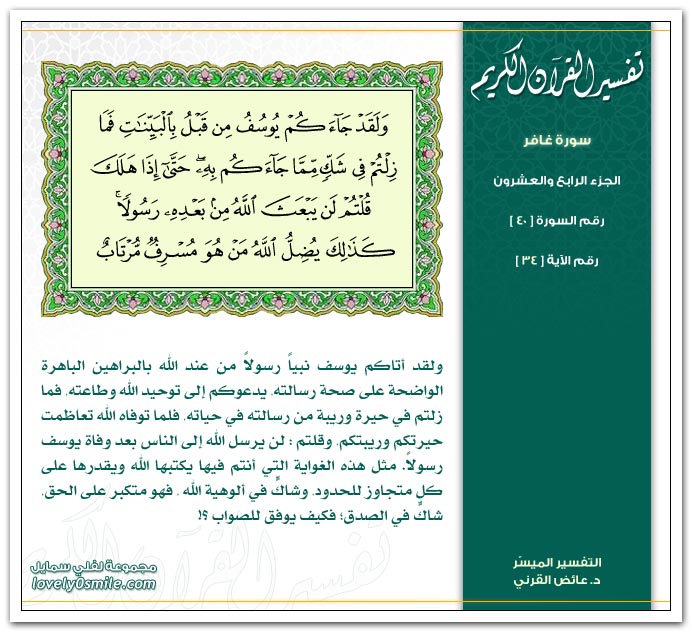 تفسير القرآن الكريم
سورة غافر
الجزء الرابع والعشرون
رقم السورة [ ٤٠ ]
رقم الآية [ ٣٤ ]
وَلَقَدْ جَآءَكُمْ يُوسُفُ مِن قَبْلُ بِٱلْبَيِّنَٰتِ فَمَا
زِلْتُمْ فِى شَكٍّ مِّمَّا جَآءَكُم بِهِۦ ۖ حَتَّىٰٓ إِذَا هَلَكَ
قُلْتُمْ لَن يَبْعَثَ ٱللَّهُ مِنۢ بَعْدِهِۦ رَسُولًا ۚ
كَذَٰلِكَ يُضِلُّ ٱللَّهُ مَنْ هُوَ مُسْرِفٌ مُّرْتَابٌ
ولقد أتاكم يوسف نبياً رسولاً من عند الله بالبراهين الباهرة
الواضحة على صحة رسالته، يدعوكم إلى توحيد الله وطاعته، فما
زلتم في حيرة وريبة من رسالته في حياته، فلما توفاه الله تعاظمت
حيرتكم وريبتكم، وقلتم : لن يرسل الله إلى الناس بعد وفاة يوسف
رسولاً، مثل هذه الغواية التي أنتم فيها يكتبها الله ويقدرها على
كلٍ متجاوز للحدود، وشاكٍّ في ألوهية الله ، فهو متكبر على الحق،
شاكٌ في الصدق؛ فكيف يوفق للصواب ؟!
التفسير الميسّر
د. عائض القرني
مجموعة لفلي سمايل
lovely0smile.com